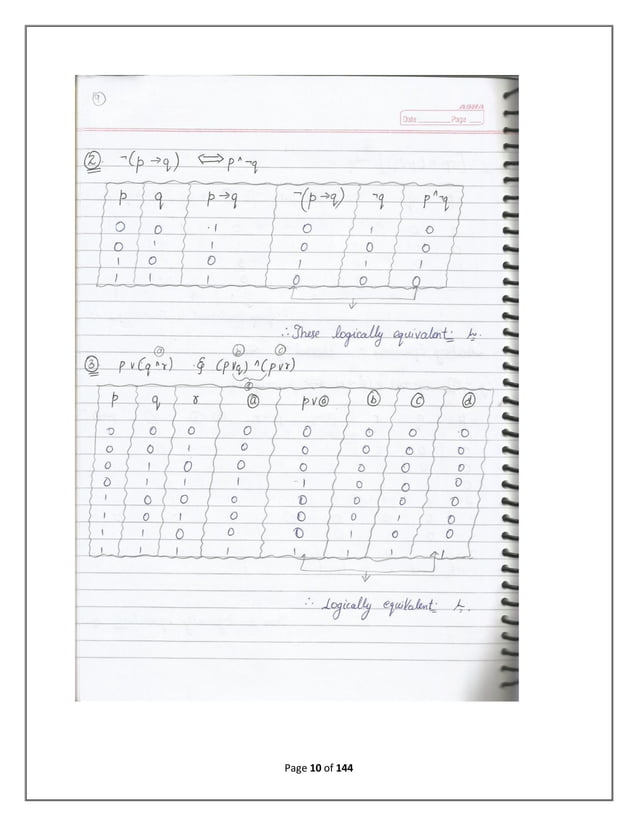 9
ASHA
Date ________ Page ____
② ¬(p→q) ⟺ p^¬q
p q p→q ¬(p→q) ¬q p^¬q
0 0 1 0 1 0
0 1 1 0 0 0
1 0 0 1 1 1
1 1 1 0 0 0
∴ These logically equivalent:
ⓐ ⓑ ⓒ
③ p∨(q^r) & (p∨q)^(p∨r)
ⓓ
p q r ⓐ p∨ⓐ ⓑ ⓒ ⓓ
0 0 0 0 0 0 0 0
0 0 1 0 0 0 0 0
0 1 0 0 0 0 0 0
0 1 1 1 1 0 0 0
1 0 0 0 0 0 0 0
1 0 1 0 0 0 1 0
1 1 0 0 0 1 0 0
1 1 1 1 1 1 1 1
∴ Logically equivalent:
Page 10 of 144